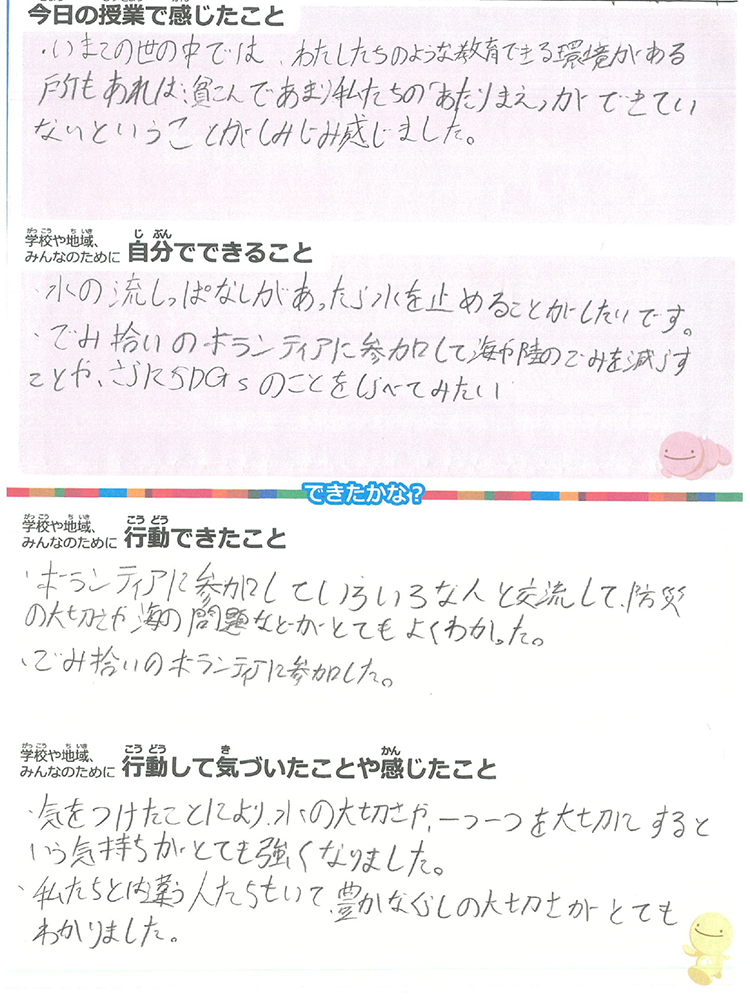 今日の授業で感じたこと
・いまこの世の中では、わたしたちのような教育できる環境がある
所もあれば、貧こんであまり私たちの「あたりまえ」ができてい
ないということがしみじみ感じました。
がっこう ちいき
学校や地域、
みんなのために
じぶん
自分でできること
・水の流しっぱなしがあったら水を止めることがしたいです。
・ごみ拾いのボランティアに参加して海や陸のごみを減らす
ことや、さらにSDGsのことをしらべてみたい
できたかな?
がっこう ちいき
学校や地域、
みんなのために
こうどう
行動できたこと
・ボランティアに参加していろいろな人と交流して、防災
の大切さや海の問題などがとてもよくわかった。
・ごみ拾いのボランティアに参加した。
がっこう ちいき
学校や地域、
みんなのために
こうどう き かん
行動して気づいたことや感じたこと
・気をつけたことにより、水の大切さや、一つ一つを大切にすると
いう気持ちがとても強くなりました。
・私たちとは違う人たちもいて、豊かなくらしの大切さがとても
わかりました。